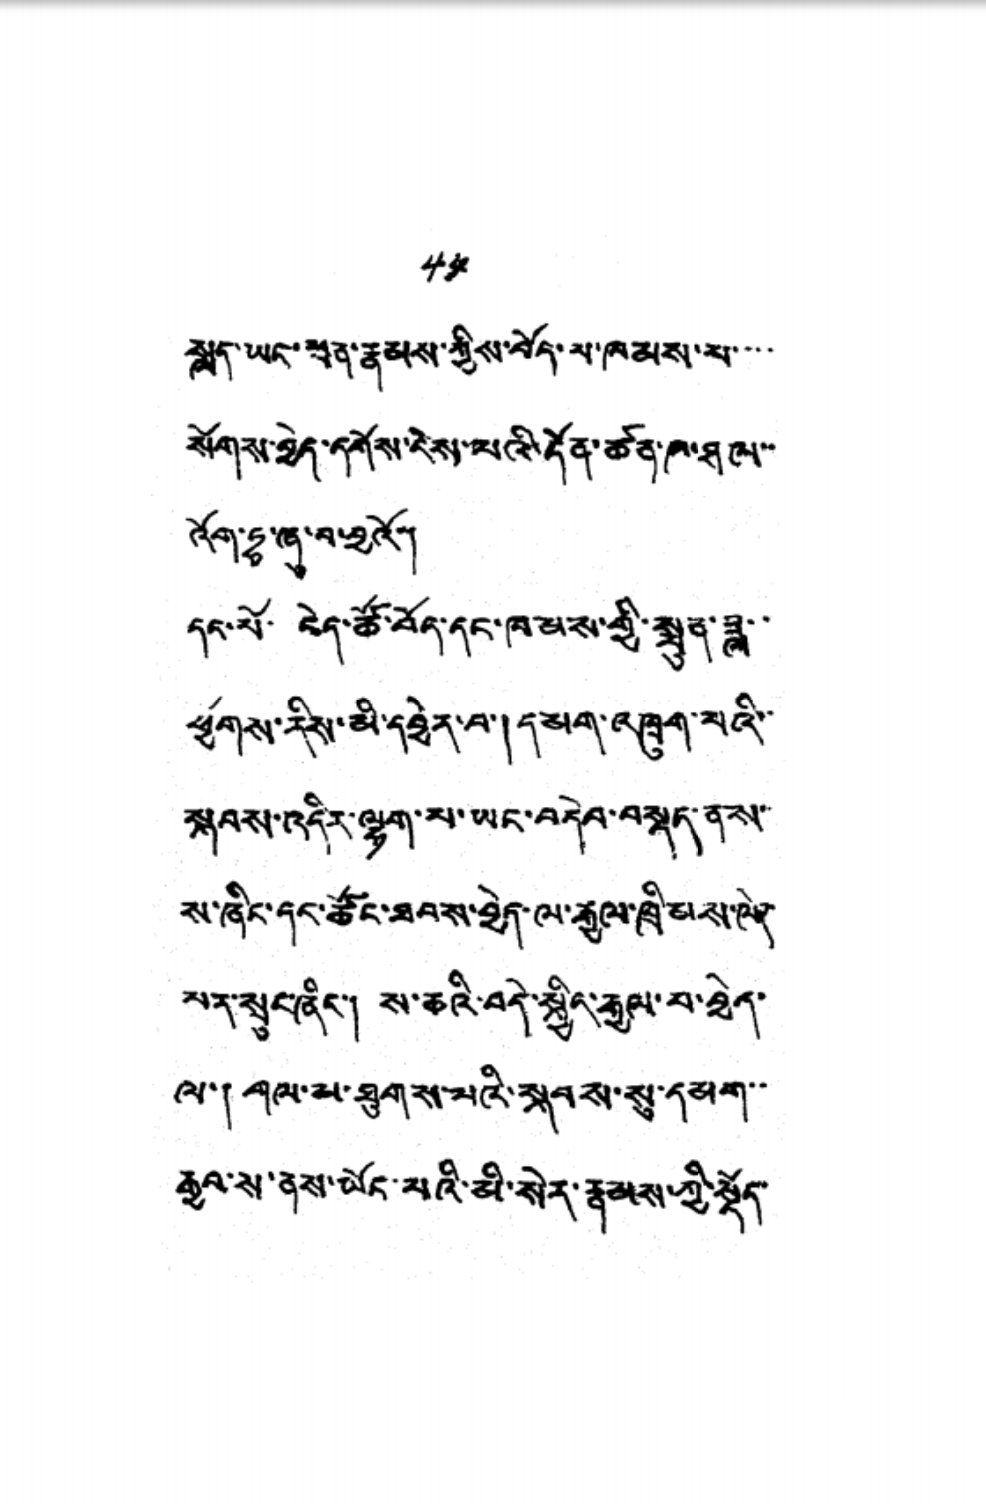 ༤༥
སླད་ཡང་ཕྲན་རྣམས་ཀྱིས་བོད་པ་ཁམས་པ་····
སོགས་བྱེད་དགོས་ངེས་པའི་དོན་ཚན་ཁ་ཤས་··
འོག་ཏུ་ཞུ་བ་བྱའོ༎
དང་པོ་ ངེད་ཚོ་བོད་དང་ཁམས་ཀྱི་སྤུན་ཟླ་··
ཕྱོགས་རིས་མི་དབྱེར་བ་། དམག་འཁྲུག་པའི་··
སྐབས་འདིར་ལྷག་པ་ཡང་བདེབ་བསྡད་ནས་··
ས་ཞིང་དང་ཚོང་ཐབས་བྱེད་ལ་རྒྱལ་ཁྲིམས་ལེར་
པར་སྲུང་ཞིང་། ས་ཆའི་བདེ་སྐྱིད་རྒྱལ་བ་བྱེད་
ལ་། གལ་མ་ཐུགས་པའི་སྐབས་སུ་དམག་··
རྒྱབ་ས་ནས་ཡོང་པའི་མི་སེར་རྣམས་ཀྱི་སྡོད་